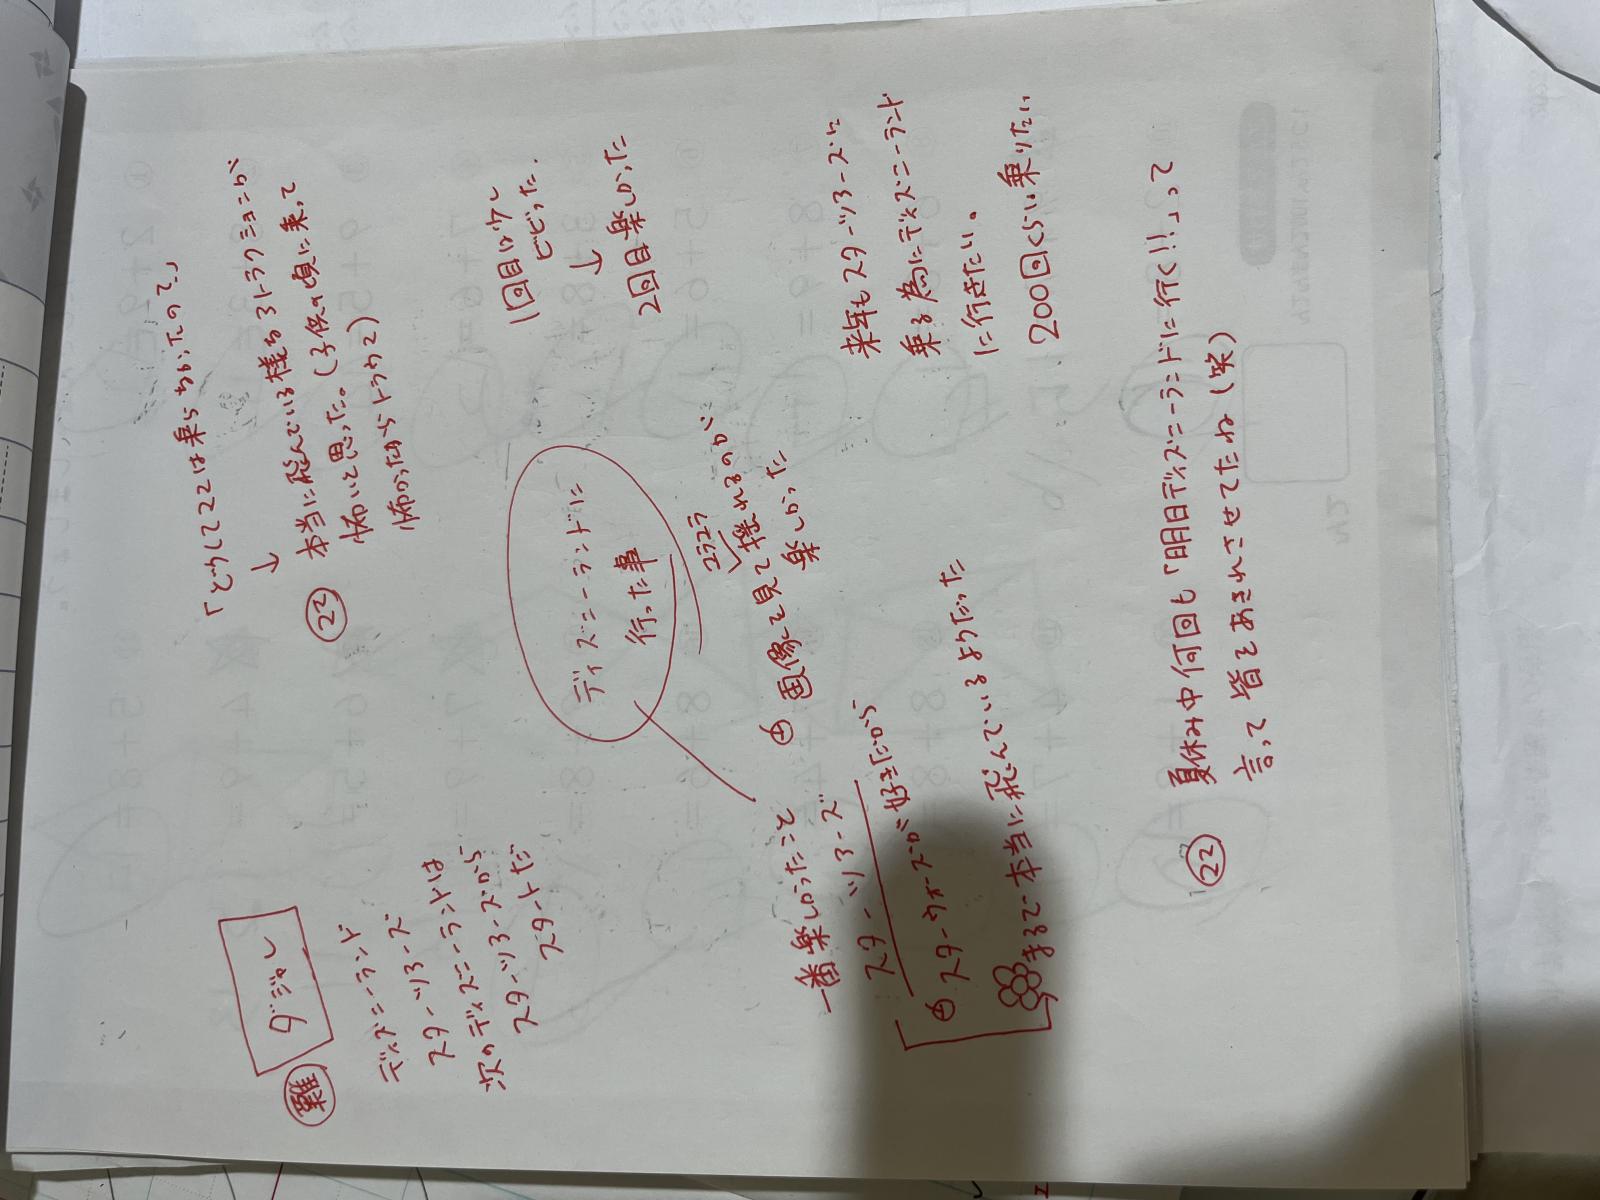 難
ダジャレ
ディズニーランド
スターツアーズ
次のディズニーランドは
スターツアーズから
スタートだ
「どうしてママは乗らなかったの？」
↓
ママ
本当に飛んでいる様なアトラクションが
怖いと思った。(子供の頃に乗って
怖かったからトラウマ)
ディズニーランドに
行った事
1回目は少し
ビビった。
↓
2回目楽しかった
一番楽しかったこと
スターツアーズ
⊕ スターウォーズが好きだから
まるで本当に飛んでいるようだった
⊕ 画像を見て揺れるのが
ユラユラ
楽しかった
来年もスターツアーズに
乗る為にディズニーランド
に行きたい。
200回くらい乗りたい
ママ
夏休み中何回も「明日ディズニーランドに行く!!」って
言って皆をあきれさせてたね(笑)